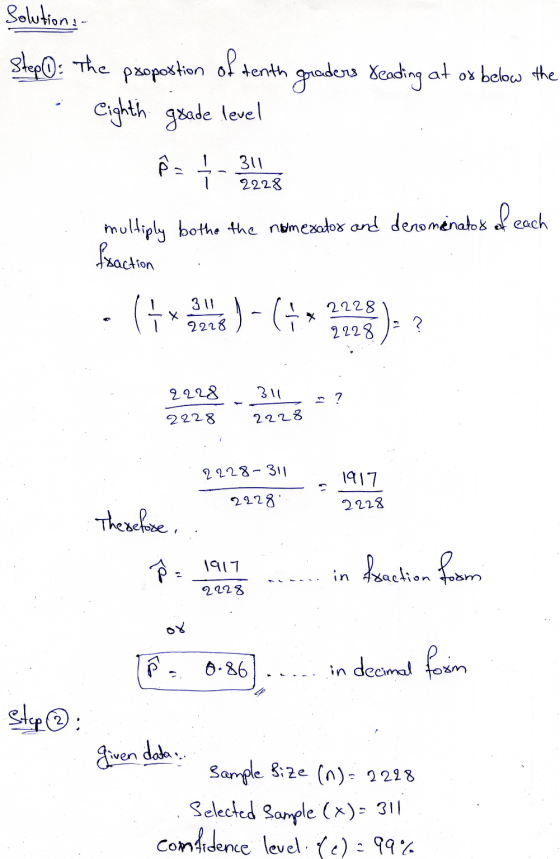 Solution:-
Step①: The proportion of tenth graders reading at or below the
Eighth grade level
p̂ = 1/1 - 311/2228
multiply bothe the numerator and denominator of each
fraction
- (1/1 × 311/2228) - (1/1 × 2228/2228) = ?
2228/2228 - 311/2228 = ?
2228-311/2228 = 1917/2228
Therefore,
p̂ = 1917/2228 ...... in fraction form
or
p̂ = 0.86 ..... in decimal form
Step②:
given data:-
Sample Size (n) = 2228
Selected Sample (x) = 311
Comfidence level (c) = 99%